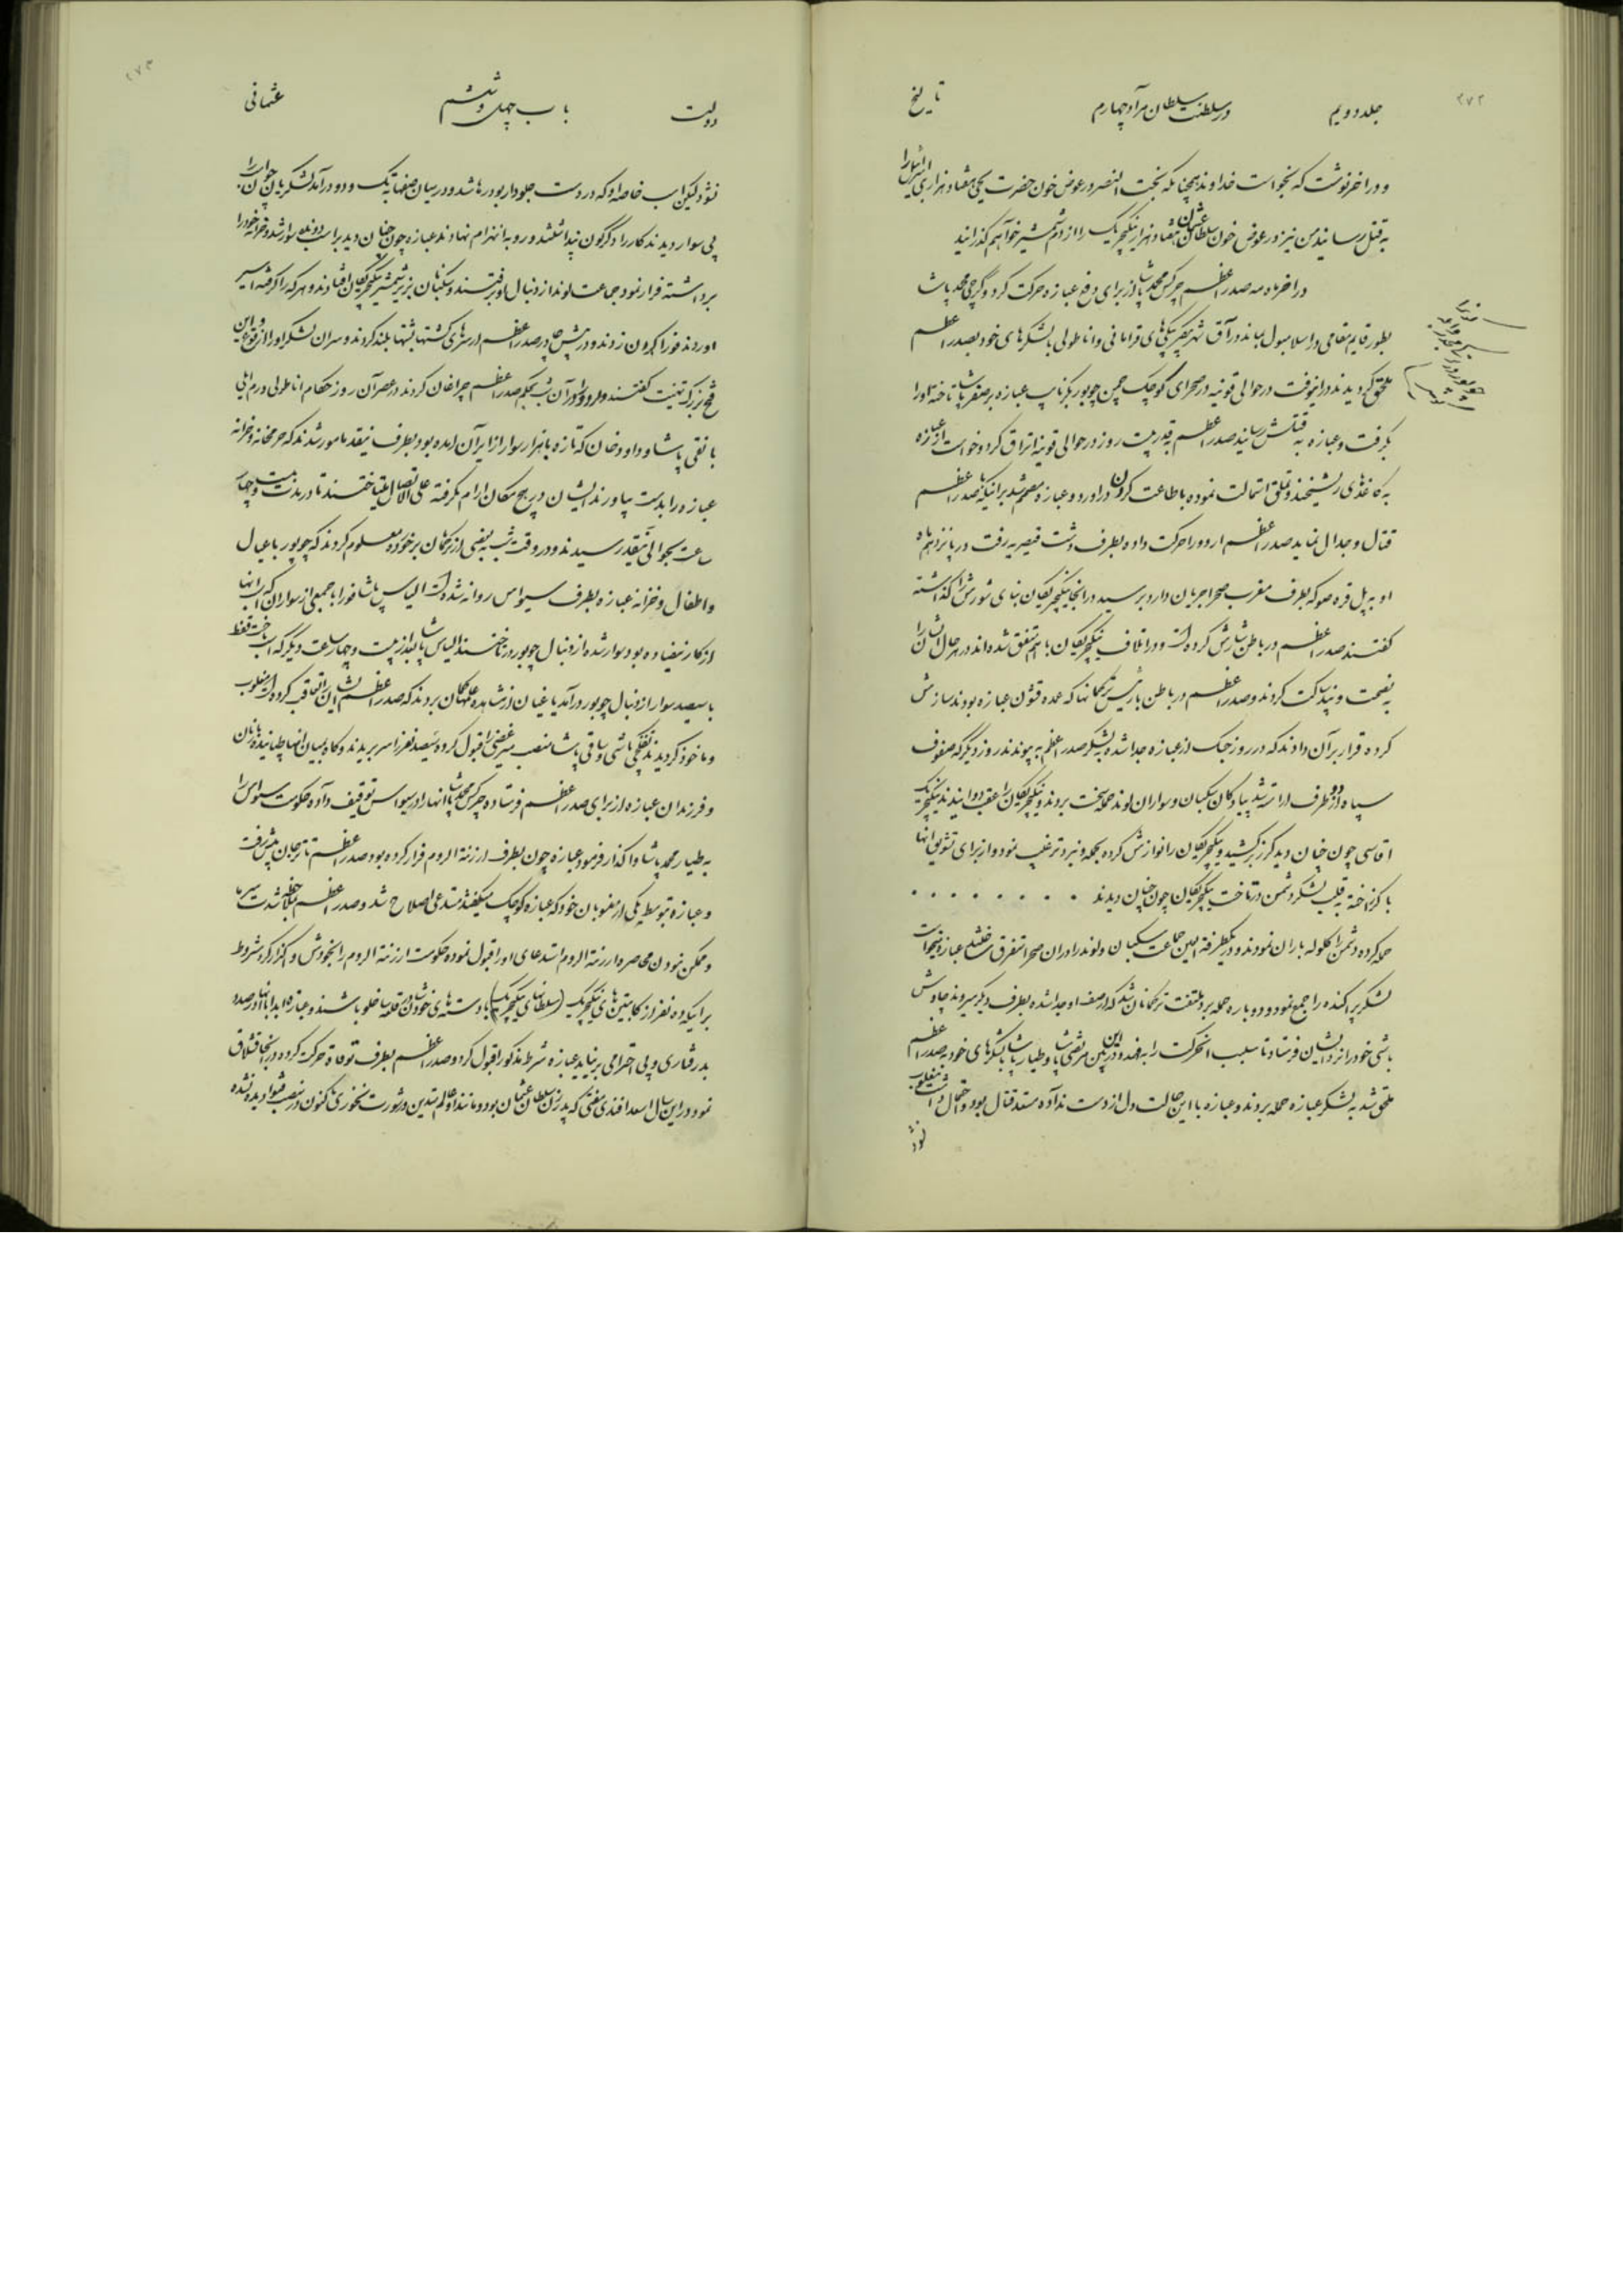 ۲۷۲
جلد دویم در سلطنت سلطان مراد چهارم تاریخ
و در اخر نوشت که بخواست خداوند همچنانکه بخت النصر در عوض خون حضرت یحیی هفتاد هزار بنی اسرائیل را
به قتل رسانید من نیز در عوض خون سلطان عثمان هفتاد هزار از ینگیچریک را از دم شمشیر خواهم گذرانید
در اخر ماه مه صدر اعظم چرکس محمد پاشا از برای دفع عبازه حرکت کرد و گرجی محمد پاشا
بطور قایم مقامی در اسلامبول بماند در آق شهر بیگلربیگی های قرامانی و اناطولی با لشکرهای خود بصدر اعظم
ملحق گردیدند در اینوقت در حوالی قونیه در صحرای کوچک چمن چوپور بکر نایب عبازه بر صفر پاشا تاخته او را
بگرفت و عبازه به قتلش رسانید صدر اعظم بقدر بیست روز در حوالی قونیه اتراق کرد و خواست از عبازه
به کاغذهای ریشخند و تملق استمالت نموده باطاعت درآورد و عبازه مصمم شد بر اینکه با صدر اعظم
قتال و جدال نماید صدر اعظم اردو را حرکت داده بطرف دشت قیصریه رفت در پانزدهم ماه
او به پل قره صو که بطرف مغرب صحرا جریان دارد برسید در انجا ینگیچریکیان بنای شورش را گذاشته
گفتند صدر اعظم در باطن سازش کرده است و در اتلاف ینگیچریکیان با هم متفق شده اند در هر حال ایشان را
به نصیحت و پند ساکت کردند و صدر اعظم در باطن با رئیس ترکمانها که عمده قشون عبازه بودند سازش
کرده قرار بر آن دادند که در روز جنگ از عبازه جدا شده به لشکر صدر اعظم به پیوندند روز دیگر که صفوف
سپاه از دو طرف اراسته شد پیادگان سکبان و سواران لوند حمله سخت بردند و ینگیچریکیان را عقب دوانیدند ینگیچریک
اقاسی چون چنان دید گرز برکشید و ینگیچریکیان را نوازش کرده بحمله و نبرد ترغیب نمود و از برای تشویق انها
با گرز اخته به قلب لشکر دشمن در تاخت ینگیچریکیان چون چنین دیدند
حمله کرده دشمن را گلوله باران نمودند و در یکطرفة العین جماعت سکبان و لوند را در ان صحرا متفرق ساختند عبازه میخواست
لشکر پراکنده را جمع نمود و دوباره حمله برد ملتفت ترکمانان شد که از صف او جدا شده بطرف دیگر میروند چاوش
باشی خود را نزد ایشان فرستاد تا سبب انحرکت را به فهمد در این بین مرتضی پاشا و طیار پاشا با لشکرهای خود به صدر اعظم
ملحق شد به لشکر عبازه حمله بردند و عبازه با این حالت دل از دست نداده مستعد قتال بود و احتمال داشت مغلوب
نشود
۲۷۳
دولت باب چهل و ششم عثمانی
نشود لیکن اسب خاصه او که در دست جلودار بود رها شد و در میان صفها به تک و دو درآمد لشکریان چون اسب او را
بی سوار دیدند کار را دگرگون پنداشتند و رو به انهزام نهادند عبازه چون چنان دید بر اسب دونده سوار شده و خزانه خود را
برداشته فرار نمود جماعت لوند از دنبال او برفتند و سکبانان بزیر شمشیر ینگیچریکیان افتادند و هر که را گرفته اسیر
اوردند فورا گردن زدند و در پیش چادر صدر اعظم از سرهای کشتها پشتها بلند کردند و سران لشکر او را از وقوع این
فتح بزرگ تهنیت گفتند و اردو را در آن شب بحکم صدر اعظم چراغان کردند در عصر آن روز حکام اناطولی و روم ایلی
با نقی پاشا و داود خان که تازه با هزار سوار از ایران امده بود بطرف نیقده مامور شدند که حرمخانه و خزانه
عبازه را بدست بیاورند ایشان در هیچ مکان ارام نگرفته علی الاتصال میتاختند تا در مدت بیست و چهار
ساعت بحوالی نیقده رسیدند و در وقت شب به بعضی از ترکمانان برخورده معلوم کردند که چوپور با عیال
و اطفال و خزانه عبازه بطرف سیواس روانه شده است الیاس پاشا فورا با جمعی از سواران که اسب انها
از کار نیفتاده بود سوار شده از دنبال چوپور در تاختند الیاس پاشا بعد از بیست و چهار ساعت دیگر که اسب تاخت فقط
با سیصد سوار از دنبال چوپور درآمد یاغیان از مشاهده گمان بردند که صدر اعظم ایشان را تعاقب کرده است مغلوب
و ماخوذ گردیدند تفنگچی باشی و ساقی پاشا منصب میر غضبی را قبول کرده سیصد نفر را سر بریدند و کاه بمیان انها چپانیده و زنان
و فرزندان عبازه را از برای صدر اعظم فرستاده چرکس محمد پاشا انها را در سیواس توقیف داده حکومت سیواس را
به طیار محمد پاشا واگذار فرمود و عبازه چون بطرف ارزنة الروم فرار کرده بود صدر اعظم تا ترجان پیش رفت
و عبازه بتوسط یکی از منسوبان خود که عبازه کوچک میگفتند مستدعی اصلاح شد و صدر اعظم بملاحظه شدت سرما
و ممکن نبودن محاصره ارزنة الروم استدعای او را قبول نموده حکومت ارزنة الروم را بخودش واگذار کرد مشروط
بر اینکه ده نفر از کاپیتن های ینگیچریک (سلطانهای ینگیچریک) با دسته های خودشان در قلعه ساخلو باشند و عبازه ابدا با انها در صدد
بد رفتاری و بی احترامی برنیاید عبازه شرط مذکور را قبول کرد و صدر اعظم بطرف توقات حرکت کرده در انجا قشلاق
نمود در این سال اسعد افندی مفتی که پدر زن سلطان عثمان بود و مانند او عالم متدین در شورت تاکنون در منصب فتوا دیده نشده